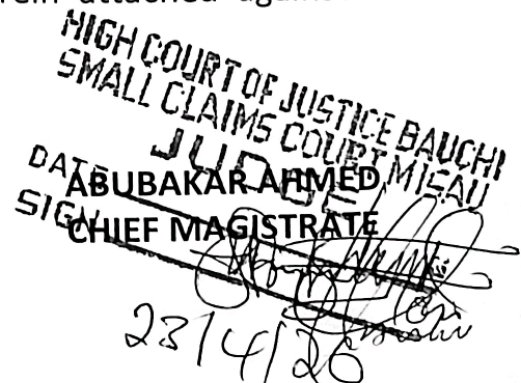 rein attached against
HIGH COURT OF JUSTICE BAUCHI
SMALL CLAIMS COURT MISAU
JUDGE
DATE
ABUBAKAR AHMED
SIGN
CHIEF MAGISTRATE
23/4/26